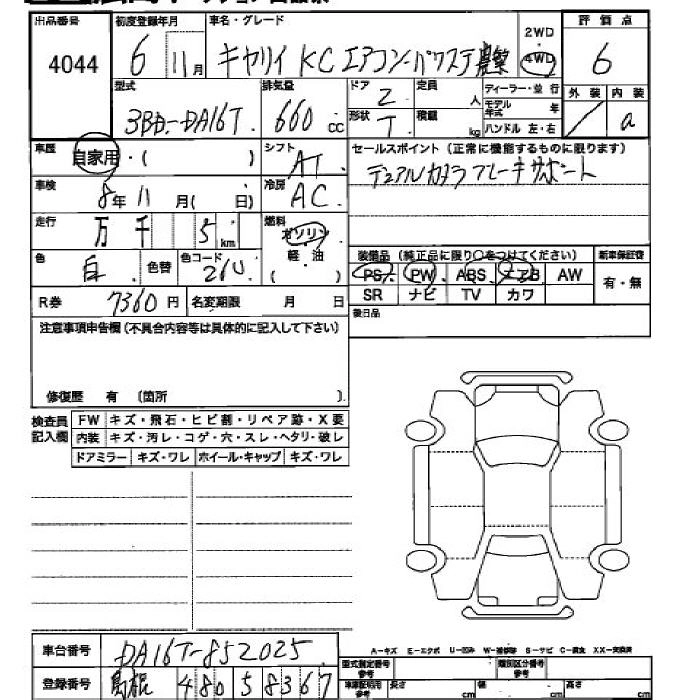 出品番号 初度登録年月 車名・グレード 評価点
4044 6年 11月 キャリイ KC エアコン・パワステ 農繁 2WD 4WD 6
型式 排気量 ドア 定員 ディーラー・並行 外装 内装
3BD-DA16T 660cc 2 人 モデル年式 年 / a
形状 T 積載 kg ハンドル 左・右
車歴 自家用・( ) シフト AT セールスポイント(正常に機能するものに限ります)
車検 8年11月( 日) 冷房 AC デュアルカメラブレーキサポート
走行 万 千 5km 燃料 ガソリン 軽・油 ( )
色 白 色替 色コード 26U 装備品(純正品に限り○をつけてください) 新車保証書
PS PW ABS エアB AW 有・無
R券 7360円 名変期限 月 日 SR ナビ TV カワ
注意事項申告欄(不具合内容等は具体的に記入して下さい) 後日品
修復歴 有 (箇所 ).
検査員記入欄 FW キズ・飛石・ヒビ割・リペア跡・X要
内装 キズ・汚レ・コゲ・穴・スレ・ヘタリ・破レ
ドアミラー キズ・ワレ ホイール・キャップ キズ・ワレ
車台番号 DA16T-852025 A-キズ E-エクボ U-凹み W-補修跡 S-サビ C-腐食 XX-交換済
型式指定番号参考 類別区分番号参考
登録番号 島根 480 5 8367 車庫証明用参考 長さ cm 幅 cm 高さ cm